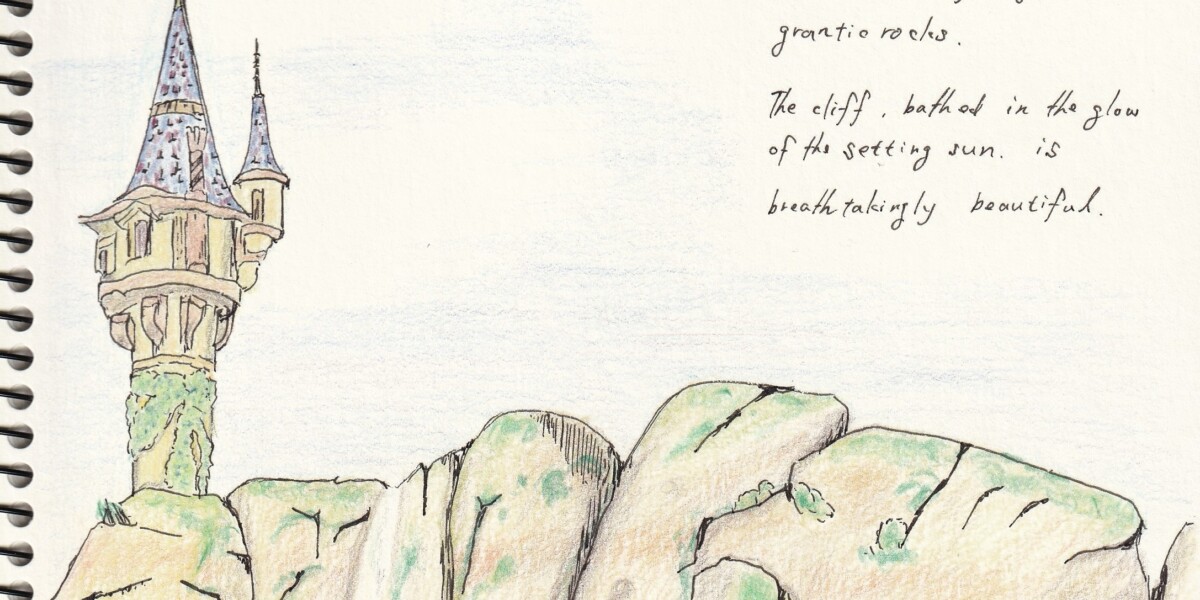 grantic rocks.
The cliff, bathed in the glow
of the setting sun. is
breathtakingly beautiful.